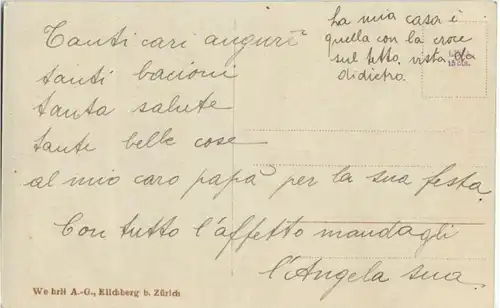 La mia casa è
quella con la croce
sul tetto, vista da
didietro.
Tanti cari auguri
tanti bacioni
tanta salute
tante belle cose
al mio caro papà per la sua festa
Con tutto l'affetto mandagli
l'Angela sua.
Wehrli A.-G., Kilchberg b. Zürich